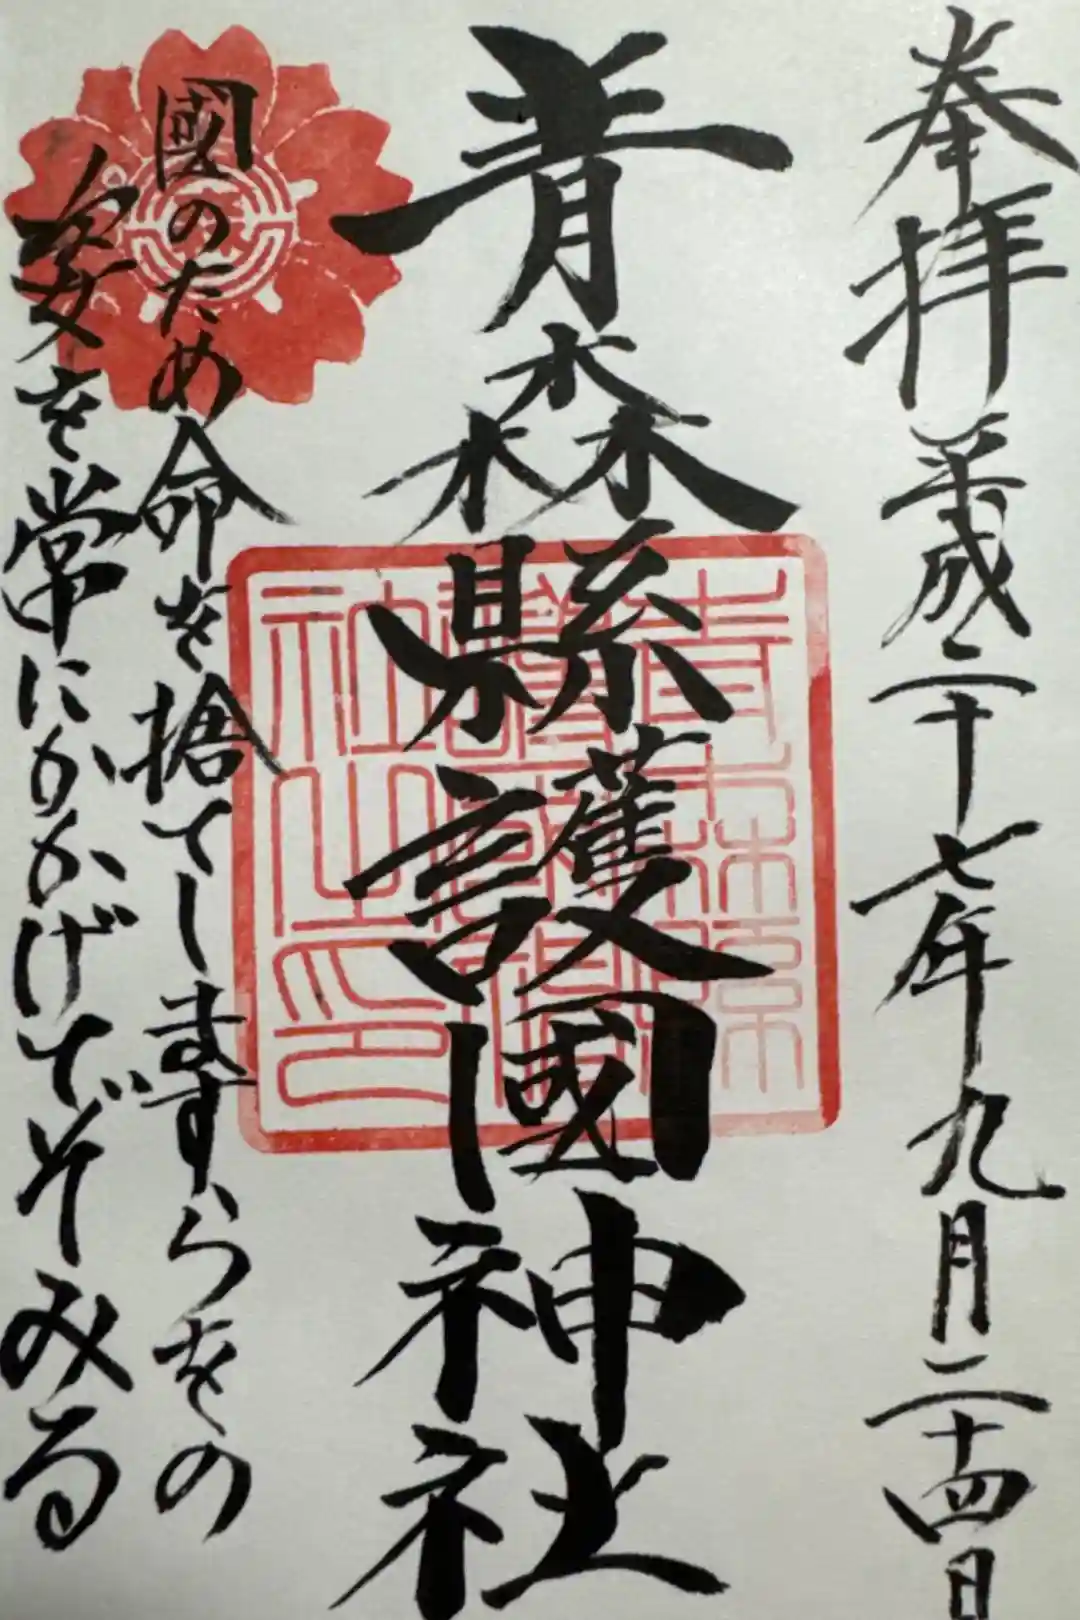 奉拝 平成二十七年九月二十四日
青森縣護國神社
國のため命を捨てしますらをの
姿を常にかかげてぞみる
青森縣護國神社之印